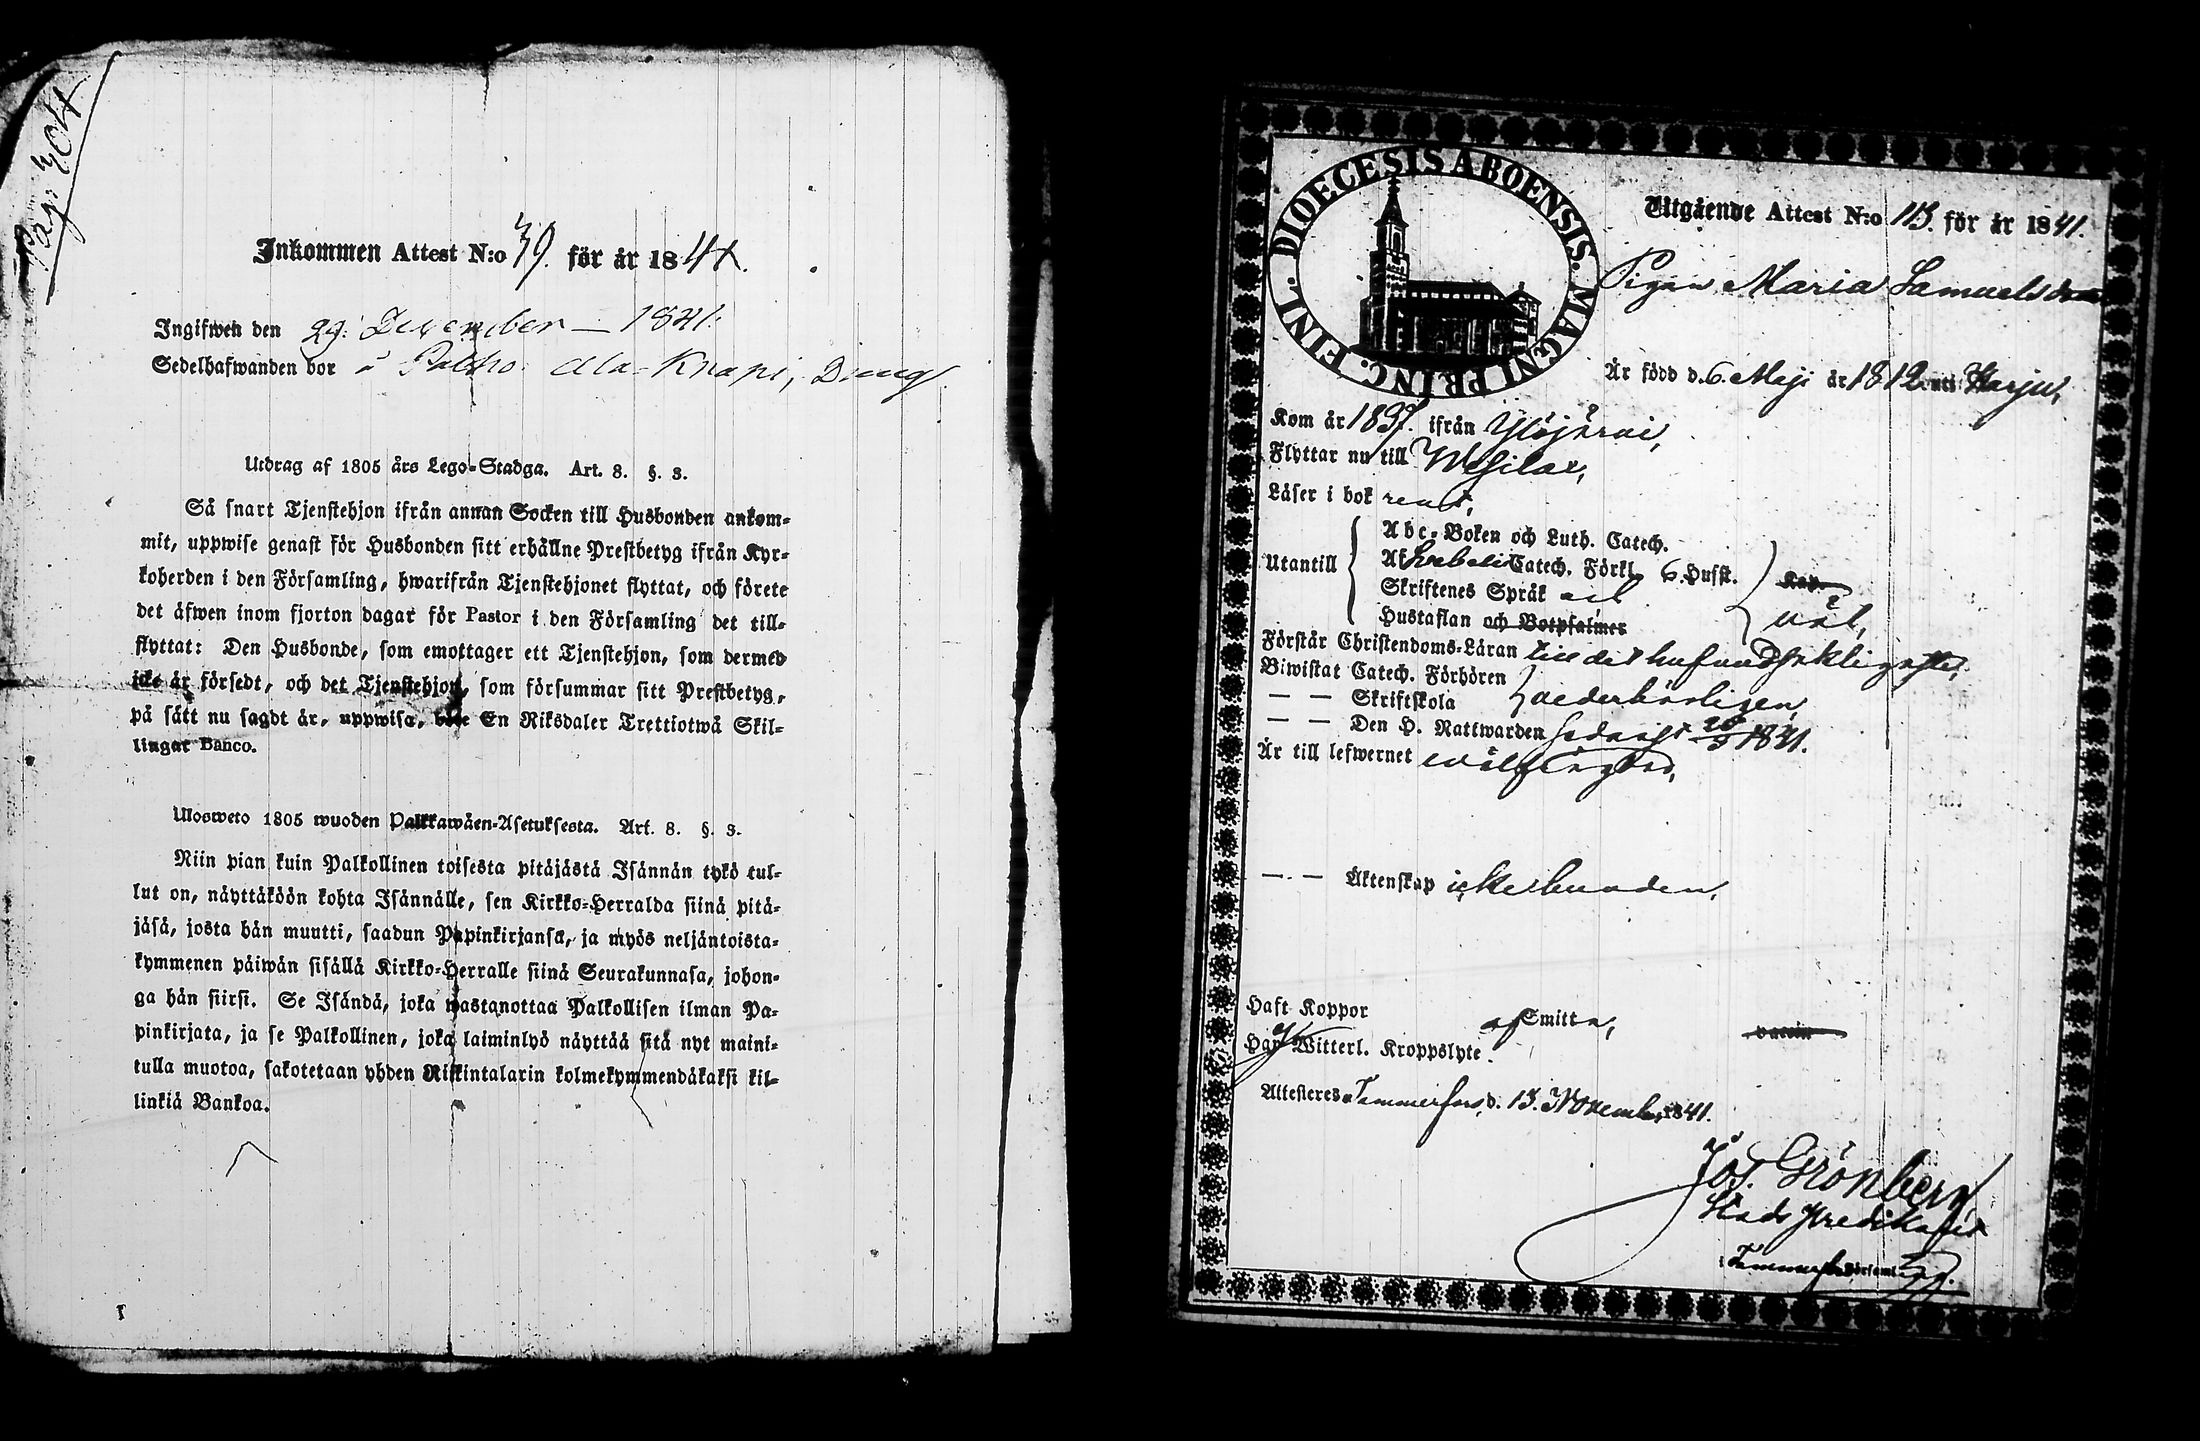 Pag. 304
Inkommen Attest N:o 39. för år 1841.
Ingifwen den 29. December — 1841.
Sedelhafwanden bor i Palho Ala-Knapi, Dreng
Utdrag af 1805 års Lego-Stadga. Art. 8. §. 3.
Så snart Tjenstehjon ifrån annan Socken till Husbonden ankom-
mit, uppwise genast för Husbonden sitt erhållne Prestbetyg ifrån Kyr-
koherden i den Församling, hwarifrån Tjenstehjonet flyttat, och förete
det äfwen inom fjorton dagar för Pastor i den Församling det till-
flyttat: Den Husbonde, som emottager ett Tjenstehjon, som dermed
icke är försedt, och det Tjenstehjon, som försummar sitt Prestbetyg,
på sätt nu sagdt är, uppwisa, böte En Riksdaler Trettiotwå Skil-
lingar Banco.
Ulosweto 1805 wuoden Palkkawäen-Asetuksesta. Art. 8. §. 3.
Niin pian kuin Palkollinen toisesta pitäjästä Isännän tykö tul-
lut on, näyttäköön kohta Isännälle, sen Kirkko-Herralda siinä pitä-
jäsä, josta hän muutti, saadun Papinkirjansa, ja myös neljäntoista-
kymmenen päiwän sisällä Kirkko-Herralle siinä Seurakunnasa, johon-
ga hän siirsi. Se Isändä, joka wastanottaa Palkollisen ilman Pa-
pinkirjata, ja se Palkollinen, joka laiminlyö näyttää sitä nyt maini-
tulla muotoa, sakotetaan yhden Riikintalarin kolmekymmendäkaksi kil-
linkiä Bankoa.
DIOECESIS ABOENSIS. MAGNI PRINC. FINL.
Utgående Attest N:o 113. för år 1841.
Pigan Maria Samuelsdotter
Är född d. 6. Maji år 1812 uti Harju,
Kom år 1837. ifrån Ylöjärvi,
Flyttar nu till Wesilax,
Läser i bok rent,
Abc-Boken och Luth. Catech.
Utantill
Catech. Förkl. o. Husst.
Skriftenes Språk
Hustaflan och Botpsalmer
väl,
Förstår Christendoms-Läran till det hufvudsakligaste,
Biwistat Catech. Förhören
— — Skriftskola vederbörligen,
— — Den H. Nattwarden sednast 26/9 1841.
Är till lefwernet wälfrägdad,
— — Äktenskap icke bunden,
Haft Koppor af Smitta, vaccin
Har Witterl. Kroppslyte.
Attesteres Tammerfors, d. 13. November 1841.
Jos. Grönberg,
Stads Predikant
i Tammerfors Församl.